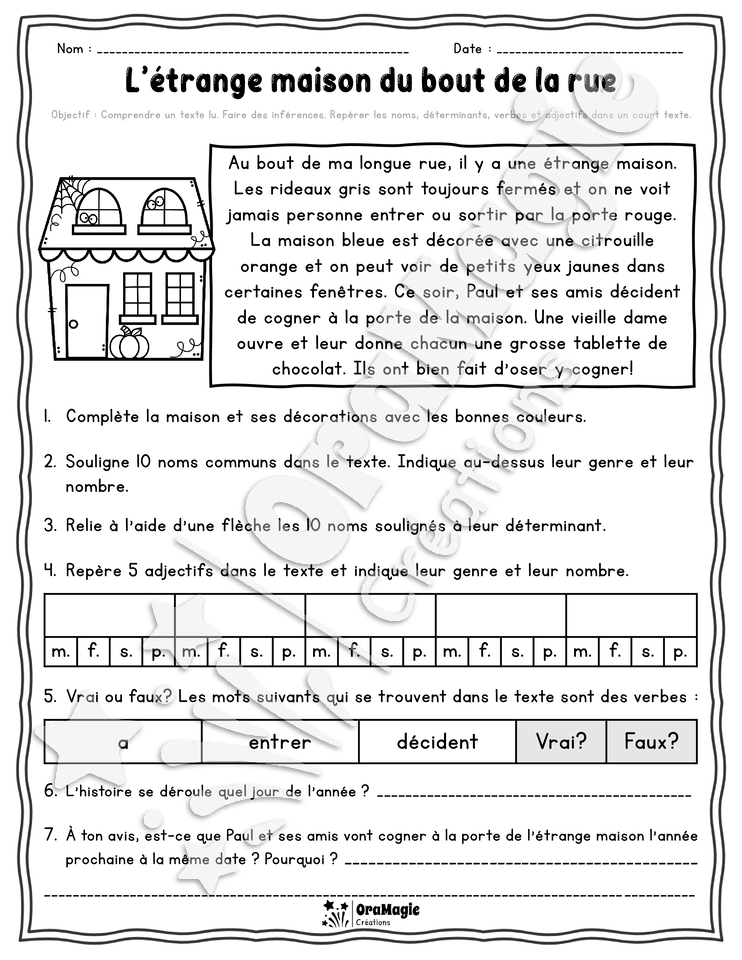 Nom : Date :
L'étrange maison du bout de la rue
Objectif : Comprendre un texte lu. Faire des inférences. Repérer les noms, déterminants, verbes et adjectifs dans un court texte.
Au bout de ma longue rue, il y a une étrange maison.
Les rideaux gris sont toujours fermés et on ne voit
jamais personne entrer ou sortir par la porte rouge.
La maison bleue est décorée avec une citrouille
orange et on peut voir de petits yeux jaunes dans
certaines fenêtres. Ce soir, Paul et ses amis décident
de cogner à la porte de la maison. Une vieille dame
ouvre et leur donne chacun une grosse tablette de
chocolat. Ils ont bien fait d'oser y cogner!
1. Complète la maison et ses décorations avec les bonnes couleurs.
2. Souligne 10 noms communs dans le texte. Indique au-dessus leur genre et leur
nombre.
3. Relie à l'aide d'une flèche les 10 noms soulignés à leur déterminant.
4. Repère 5 adjectifs dans le texte et indique leur genre et leur nombre.
m. f. s. p. m. f. s. p. m. f. s. p. m. f. s. p. m. f. s. p.
5. Vrai ou faux? Les mots suivants qui se trouvent dans le texte sont des verbes :
a entrer décident Vrai? Faux?
6. L'histoire se déroule quel jour de l'année ?
7. À ton avis, est-ce que Paul et ses amis vont cogner à la porte de l'étrange maison l'année
prochaine à la même date ? Pourquoi ?
OraMagie
Créations
OraMagie
Créations